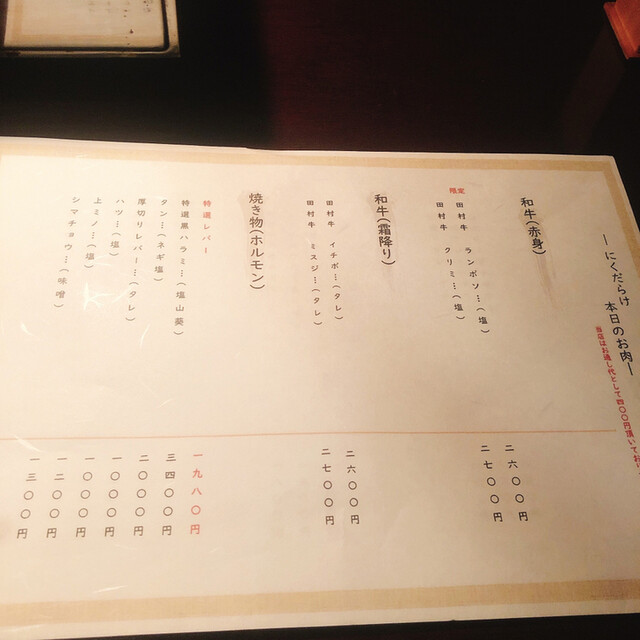 当店はお通し代として四〇〇円頂いてお
ーにくだらけ 本日のお肉ー
和牛(赤身)
田村牛 ランボソ…(塩) 二六〇〇円
限定 田村牛 クリミ…(塩) 二七〇〇円
和牛(霜降り)
田村牛 イチボ…(タレ) 二六〇〇円
田村牛 ミスジ…(タレ) 二七〇〇円
焼き物(ホルモン)
特選レバー 一九八〇円
特選黒ハラミ…(塩山葵) 三四〇〇円
タン…(ネギ塩) 二〇〇〇円
厚切りレバー…(タレ) 一〇〇〇円
ハツ…(塩) 一〇〇〇円
上ミノ…(塩) 一二〇〇円
シマチョウ…(味噌) 一三〇〇円